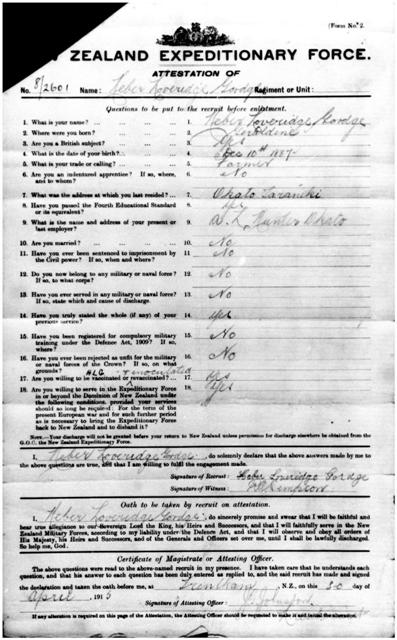 (Form No. 2.
ZEALAND EXPEDITIONARY FORCE.
ATTESTATION OF
No. 8/2601 Name: Heber Loveridge Gordge Regiment or Unit:
Questions to be put to the recruit before enlistment.
1. What is your name? 1. Heber Loveridge Gordge
2. Where were you born? 2. Geraldine
3. Are you a British subject? 3. Yes
4. What is the date of your birth? 4. Dec 10th 1887
5. What is your trade or calling? 5. Farmer
6. Are you an indentured apprentice? If so, where, and to whom? 6. No
7. What was the address at which you last resided? 7. Okato Taranaki
8. Have you passed the Fourth Educational Standard or its equivalent? 8. Yes
9. What is the name and address of your present or last employer? 9. Okato
10. Are you married? 10. No
11. Have you ever been sentenced to imprisonment by the Civil power? If so, when and where? 11. No
12. Do you now belong to any military or naval force? If so, to what corps? 12. No
13. Have you ever served in any military or naval force? If so, state which and cause of discharge. 13. No
14. Have you truly stated the whole (if any) of your previous service? 14. yes
15. Have you been registered for compulsory military training under the Defence Act, 1909? If so, where? 15. No
16. Have you ever been rejected as unfit for the military or naval forces of the Crown? If so, on what grounds? 16. No
H.L.G. & inoculated
17. Are you willing to be vaccinated or revaccinated? 17. Yes
18. Are you willing to serve in the Expeditionary Force in or beyond the Dominion of New Zealand under the following conditions, provided your services should so long be required: For the term of the present European war and for such further period as is necessary to bring the Expeditionary Force back to New Zealand and to disband it? 18. Yes
NOTE.—Your discharge will not be granted before your return to New Zealand unless permission for discharge elsewhere be obtained from the G.O.C. the New Zealand Expeditionary Force.
I, Heber Loveridge Gordge, do solemnly declare that the above answers made by me to
the above questions are true, and that I am willing to fulfil the engagement made.
Signature of Recruit: Heber Loveridge Gordge
Signature of Witness:
Oath to be taken by recruit on attestation.
I, Heber Loveridge Gordge, do sincerely promise and swear that I will be faithful and
bear true allegiance to our Sovereign Lord the King, his Heirs and Successors, and that I will faithfully serve in the New
Zealand Military Forces, according to my liability under the Defence Act, and that I will observe and obey all orders of
His Majesty, his Heirs and Successors, and of the Generals and Officers set over me, until I shall be lawfully discharged.
So help me, God.
Certificate of Magistrate or Attesting Officer.
The above questions were read to the above-named recruit in my presence. I have taken care that he understands each
question, and that his answer to each question has been duly entered as replied to, and the said recruit has made and signed
the declaration and taken the oath before me, at Trentham, N.Z., on this 30 day of
April, 1915
Signature of Attesting Officer:
If any alteration is required on this page of the Attestation, the Attesting Officer should be requested to make it and initial the alteration.